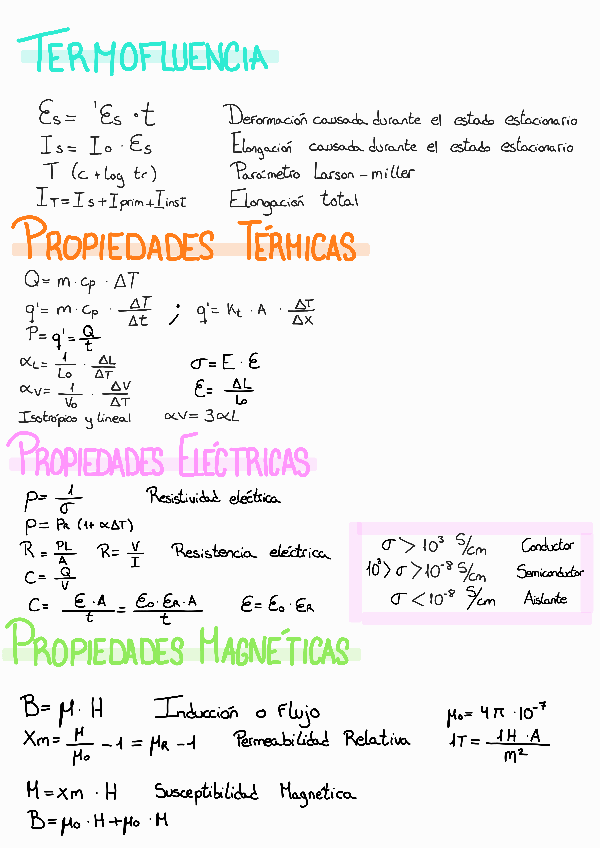 TERMOFLUENCIA
Ɛs = 'Ɛs · t Deformación causada durante el estado estacionario
Is = Io · Ɛs Elongación causada durante el estado estacionario
T (c + log tr) Parámetro Larson-miller
IT = Is + Iprim + Iinst Elongación total
PROPIEDADES TÉRMICAS
Q = m · cp · ΔT
q' = m · cp · ΔT/Δt ; q' = Kt · A · ΔT/Δx
P = q' = Q/t
αL = 1/Lo · ΔL/ΔT σ = E · Ɛ
αv = 1/Vo · ΔV/ΔT Ɛ = ΔL/Lo
Isotrópico y lineal αV = 3αL
PROPIEDADES ELÉCTRICAS
ρ = 1/σ Resistividad eléctrica
ρ = ρR (1 + αΔT)
R = ρL/A R = V/I Resistencia eléctrica
C = Q/V
C = Ɛ · A/t = Ɛo · ƐR · A/t Ɛ = Ɛo · ƐR
σ > 10³ S/cm Conductor
10³ > σ > 10⁻⁸ S/cm Semiconductor
σ < 10⁻⁸ S/cm Aislante
PROPIEDADES MAGNÉTICAS
B = μ · H Inducción o Flujo μo = 4π · 10⁻⁷
Xm = μ/μo - 1 = μR - 1 Permeabilidad Relativa 1T = 1H · A/m²
M = xm · H Susceptibilidad Magnética
B = μo · H + μo · M